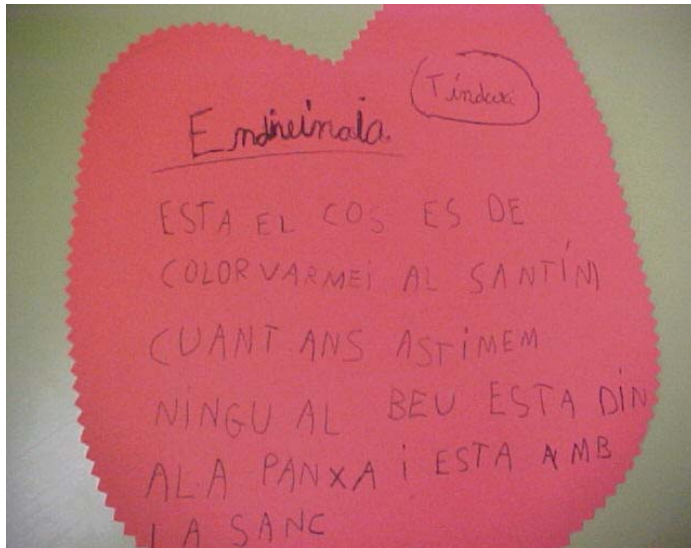 Tindari
Endivinalla
ESTA EL COS ES DE
COLOR VARMEI AL SANTÍM
CUANT ANS ASTIMEM
NINGU AL BEU ESTA DIN
ALA PANXA I ESTA AMB
LA SANC